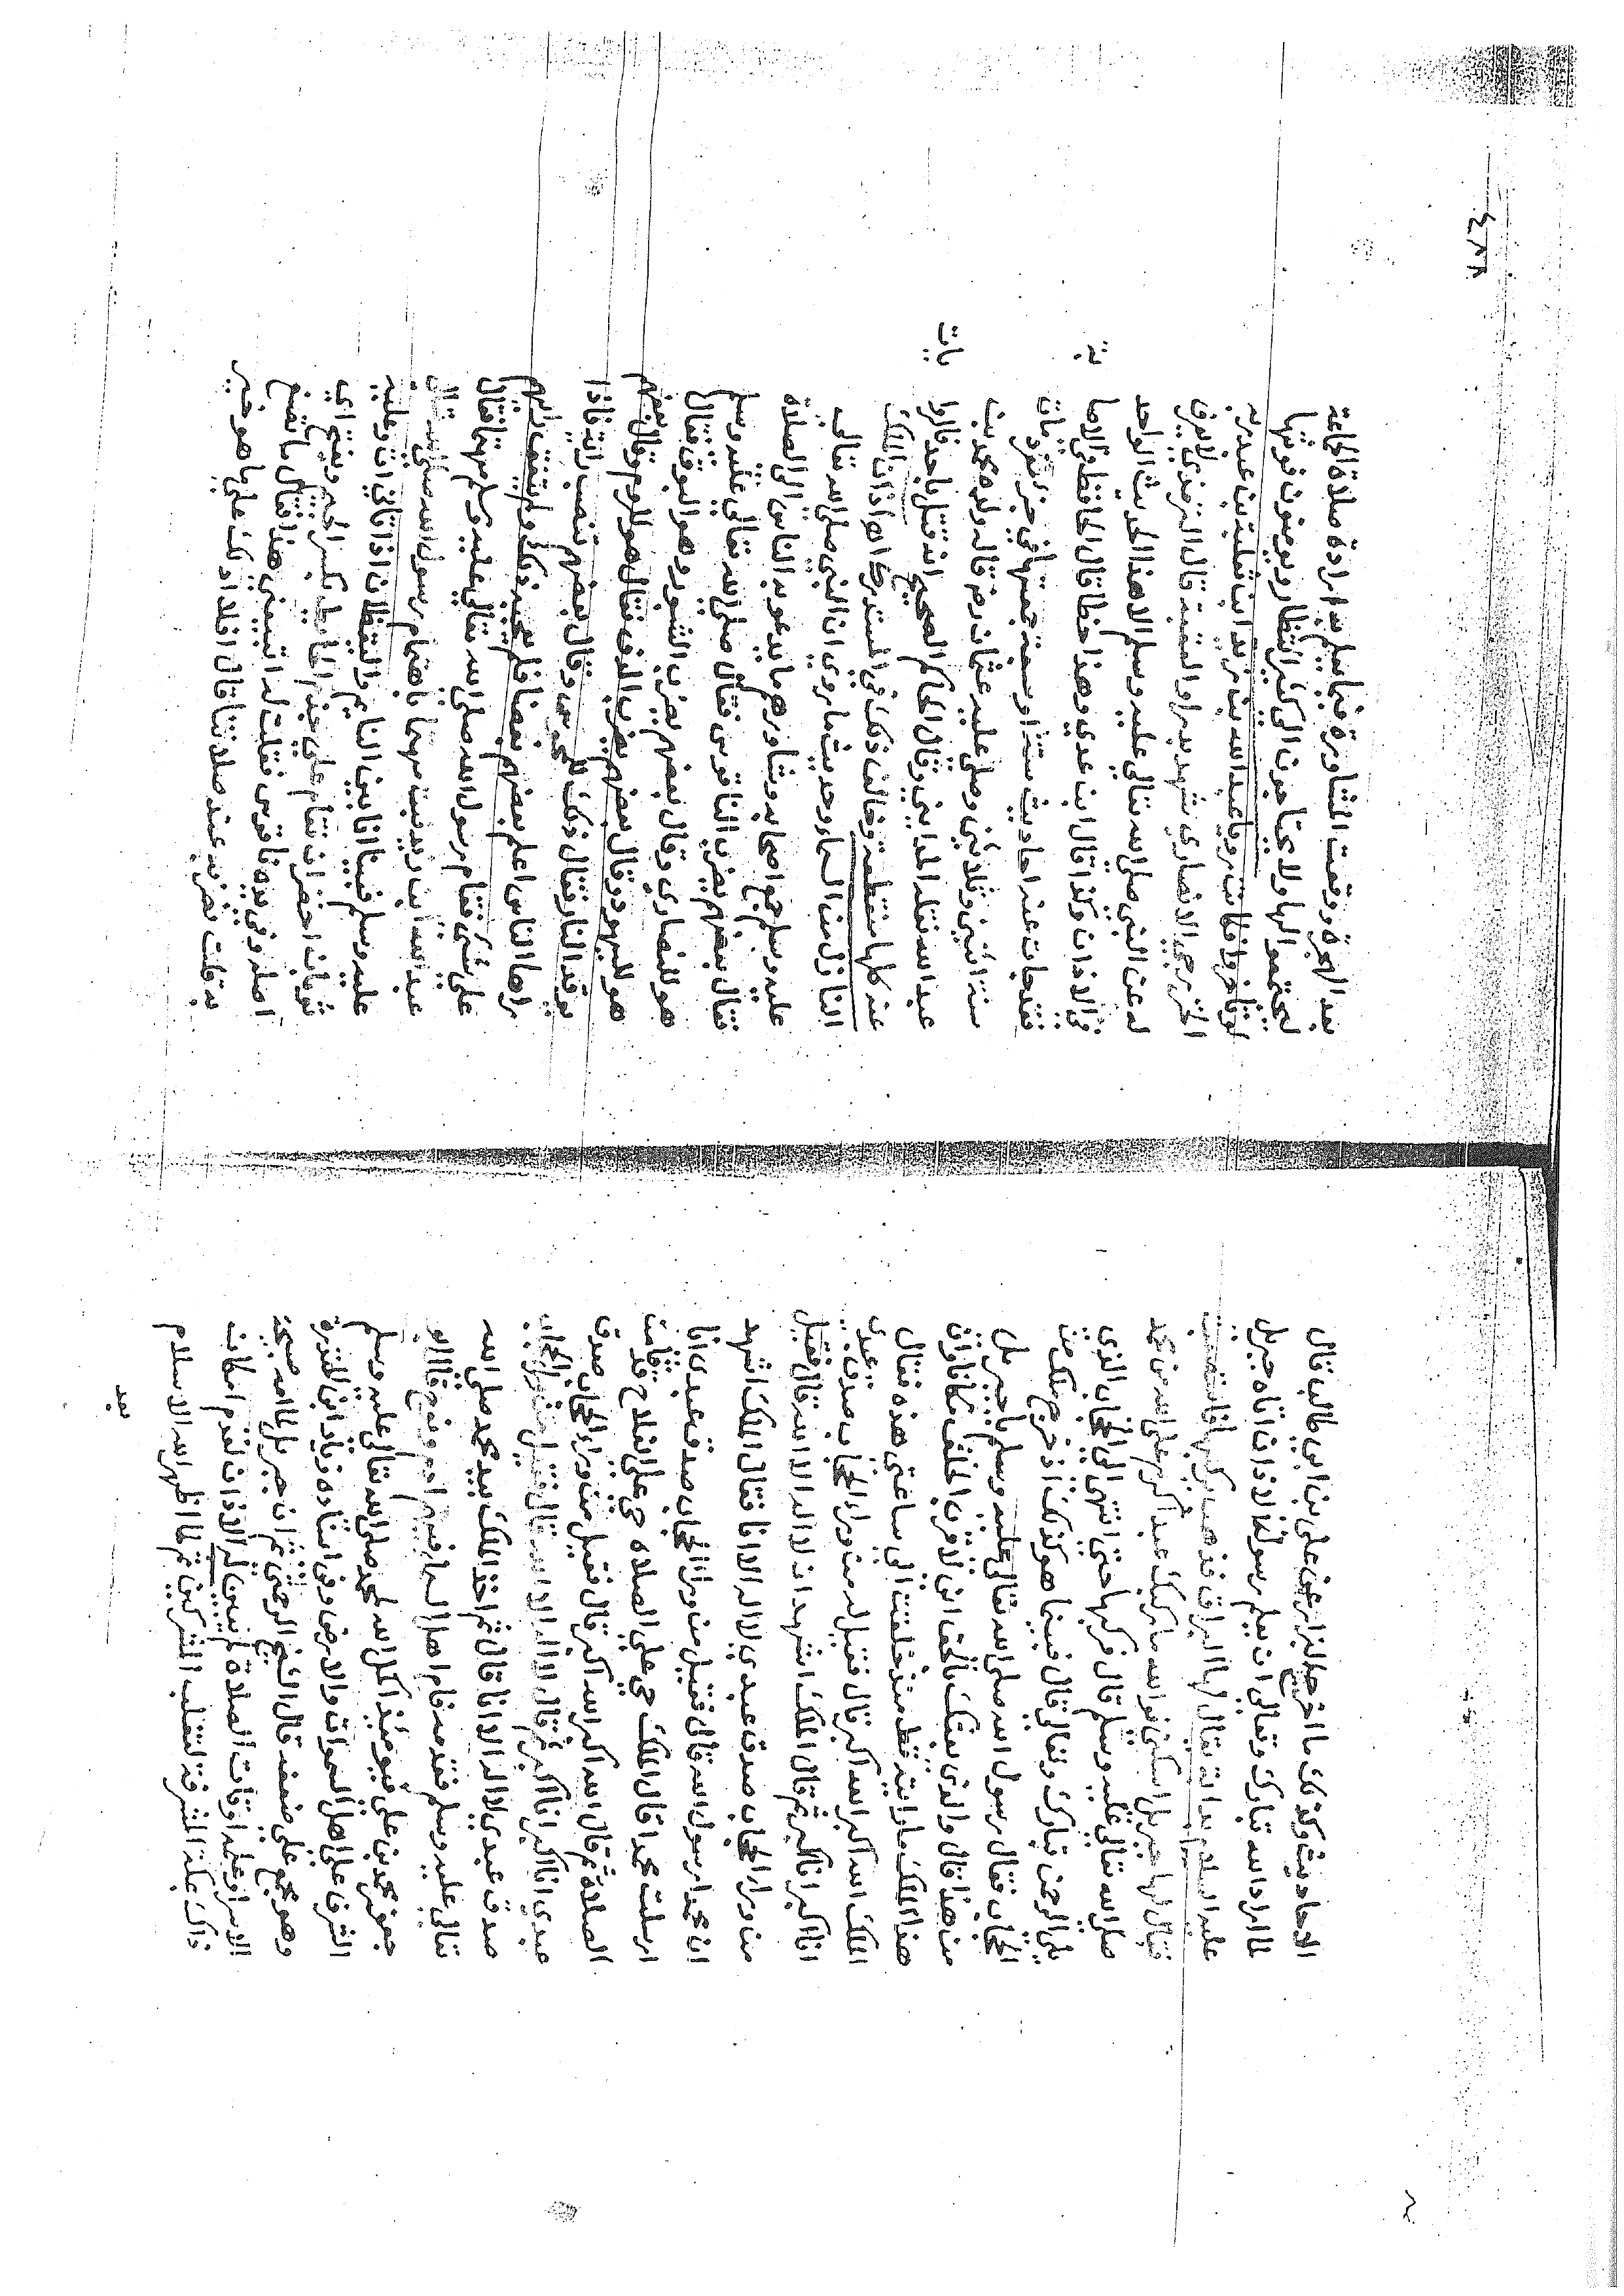 الاحاديث وكذلك ما اخرجه البزار عن علي بن ابي طالب قال
لما اراد الله تبارك وتعالى ان يعلم رسوله الاذان اتاه جبريل
عليه السلام بدابة يقال لها البراق فذهب يركبها فاستصعبت
فقال لها جبريل اسكني فوالله ما ركبك عبد اكرم على الله من محمد
صلى الله تعالى عليه وسلم قال فركبها حتى انتهى الى الحجاب الذي
يلي الرحمن تبارك وتعالى قال فبينما هو كذلك اذ خرج ملك من
الحجاب فقال رسول الله صلى الله تعالى عليه وسلم يا جبريل
من هذا قال والذي بعثك بالحق اني لاقرب الخلق مكانا وان
هذا الملك ما رايته قط منذ خلقت قبل ساعتي هذه فقال
الملك الله اكبر الله اكبر قال فقيل له من وراء الحجاب صدق عبدي
انا اكبر انا اكبر ثم قال الملك اشهد ان لا اله الا الله قال فقيل
من وراء الحجاب صدق عبدي لا اله الا انا فقال الملك اشهد
ان محمدا رسول الله قال فقيل من وراء الحجاب صدق عبدي انا
ارسلت محمدا قال الملك حي على الصلاة حي على الفلاح قد قامت
الصلاة ثم قال الله اكبر الله اكبر قال فقيل من وراء الحجاب صدق
عبدي انا اكبر انا اكبر ثم قال لا اله الا الله قال فقيل من وراء الحجاب
صدق عبدي لا اله الا انا قال ثم اخذ الملك بيد محمد صلى الله
تعالى عليه وسلم فقدمه فام اهل السماء فيهم ادم ونوح قال ابو
جعفر محمد بن علي فيومئذ اكمل الله لمحمد صلى الله تعالى عليه وسلم
الشرف على اهل السموات والارض وفي اسناده زياد ابن المنذرة
وهو مجمع على ضعفه قال الشيخ الرحمتي ثم ان جبريل لما امه صبيحة
الاسرا وعلمه اوقات الصلاة لم يبين له الاذان لعدم امكان
ذاك بمكة المشرفة لتغلب المشركين ثم لما اظهر الله الاسلام
بعد
بعد الهجرة وقعت المشاورة فيما يعلم به ارادة صلاة الجماعة
ليجتمعوا لها ولا يحتاجون الى كثير انتظار ويومنون فوتها
لو تاخروا فكانت رويا عبد الله بن زيد ابن ثعلبة بن عبد ربه
الخزرجي الانصاري شهد بدرا والعقبة قال الترمذي لا يعرف
له عن النبي صلى الله تعالى عليه وسلم الا هذا الحديث الواحد
في الاذان وكذا قال ابن عدي وهذا خطا قال الحافظ في الاصا
بة
فقد جات عنه احاديث ستة او سبعة جمعتها في جزء مفرد مات
سنة اثنين وثلاثين وصلى عليه عثمان رض قاله ولده محمد بن
عبد الله نقله المدايني وقال الحاكم الصحيح انه قتل باحد فالروا
يات
عنه كلها منقطعة وخالف ذلك في المستدرك اه اذان الملك
النازل من السماء وحديث ما روي ان النبي صلى الله تعالى
عليه وسلم جمع اصحابه وشاورهم ما يدعو به الناس الى الصلاة
فقال بعضهم يضرب الناقوس فقال صلى الله تعالى عليه وسلم
هو للنصارى وقال بعضهم يضرب الشبور وهو البوق فقال
هو لليهود وقال بعضهم يضرب الدف فقال هو للروم وقال بعضهم
يوقد النار فقال ذلك للمجوس وقال بعضهم تنصب راية فاذا
راها الناس اعلم بعضهم بعضا فلم يعجبه ذلك ولم يتفق رايهم
على شيء فقام رسول الله صلى الله تعالى عليه وسلم مهتما فقال
عبد الله ابن زيد فبت مهتما باهتمام رسول الله صلى الله تعالى
عليه وسلم فبينا انا بين النايم واليقظان اذ اتاني ات وعليه
ثوبان اخضران فقام على جذم الحايط بكسر الجيم وبفتح اي
اصله وفي يده ناقوس فقلت له اتبيعني هذا فقال ما تصنع
به قلت نضربه عند صلاتنا قال افلا ادلك على ما هو خير